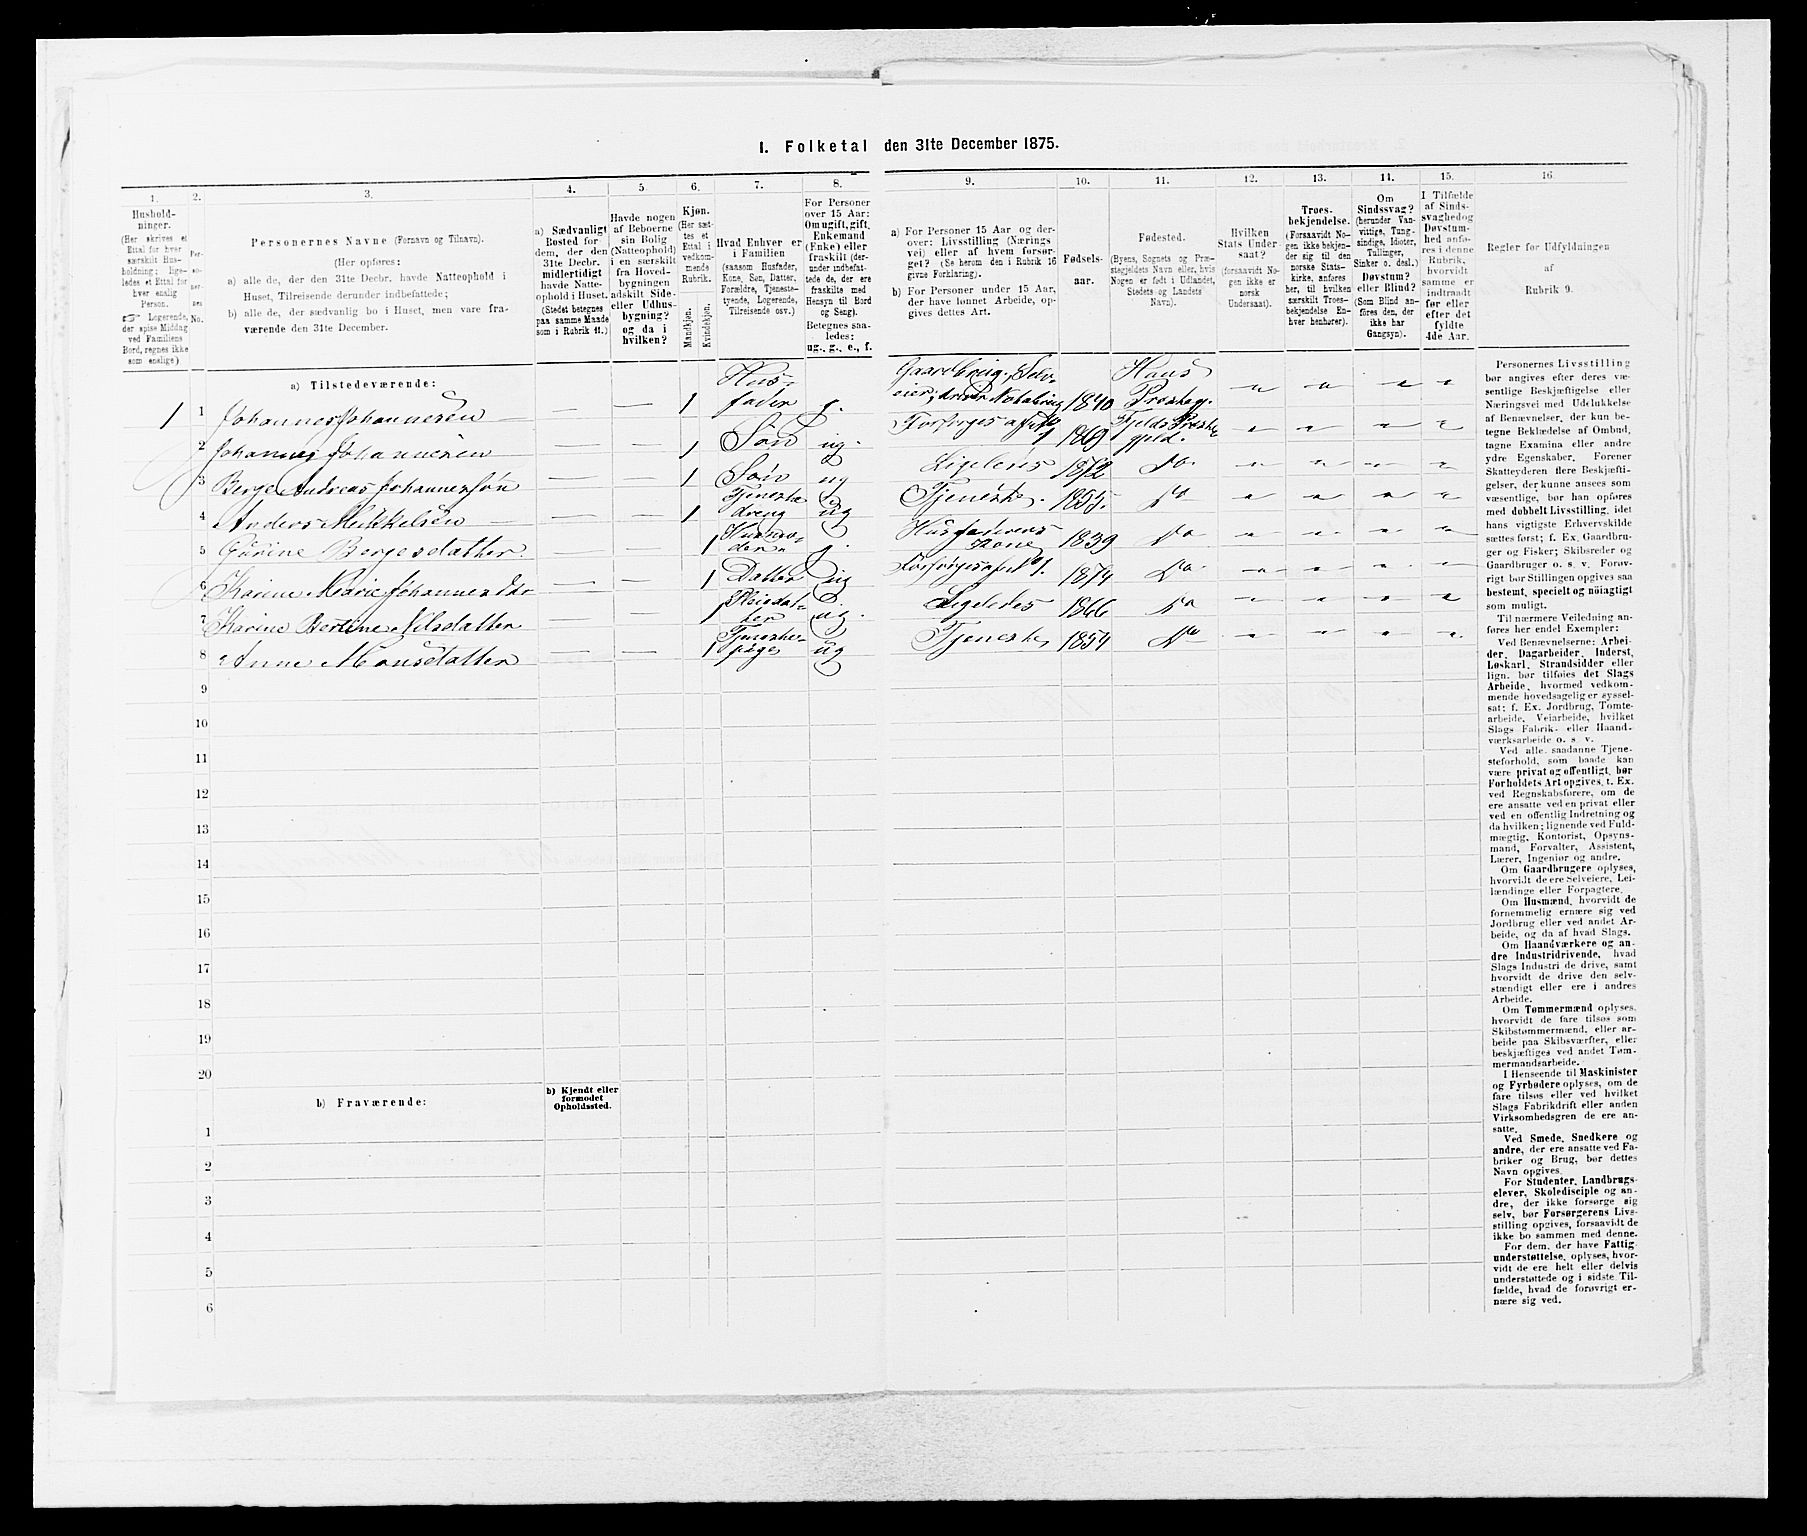 I. Folketal den 31te December 1875.
1. 2. 3. 4. 5. 6. 7. 8. 9. 10. 11. 12. 13. 14. 15. 16.
Hushold-
ninger.
(Her skrives et
Ettal for hver
særskilt Hus-
holdning; lige-
ledes et Ettal for
hver enslig
Person.
☞ Logerende,
der spise Middag
ved Familiens
Bord, regnes ikke
som enslige)
Per-
so-
ner-
nes
No.
Personernes Navne (Fornavn og Tilnavn).
(Her opføres:
a) alle de, der den 31te Decbr. havde Natteophold i
Huset, Tilreisende derunder indbefattede;
b) alle de, der sædvanlig bo i Huset, men vare fra-
værende den 31te December.
a) Sædvanligt
Bosted for
dem, der den
31te Decbr.
midlertidigt
havde Natte-
ophold i Huset.
(Stedet betegnes
paa samme Maade
som i Rubrik 11.)
Havde nogen
af Beboerne
sin Bolig
(Natteophold)
i en særskilt
fra Hoved-
bygningen
adskilt Side-
eller Udhus-
bygning?
og da i
hvilken?
Kjøn.
(Her sæt-
tes et
Ettal i
vedkom-
mende
Rubrik.
Mandkjøn.
Kvindekjøn.
Hvad Enhver er
i Familien
(saasom Husfader,
Kone, Søn, Datter,
Forældre, Tjeneste-
tyende, Logerende,
Tilreisende osv.)
For Personer
over 15 Aar:
Om ugift, gift,
Enkemand
(Enke) eller
fraskilt (der-
under indbefat-
tede de, der ere
fraskilte med
Hensyn til Bord
og Seng).
Betegnes saa-
ledes:
ug., g., e., f.
a) For Personer 15 Aar og der-
over: Livsstilling (Nærings
vei) eller af hvem forsør-
get? (Se herom den i Rubrik 16
givne Forklaring).
b) For Personer under 15 Aar,
der have lønnet Arbeide, op-
gives dettes Art.
Fødsels-
aar.
Fødested.
(Byens, Sognets og Præ-
stegjeldets Navn eller, hvis
Nogen er født i Udlandet,
Stedets og Landets
Navn).
Hvilken
Stats Under-
saat?
(forsaavidt No-
gen ikke er
norsk
Undersaat).
Troes-
bekjendelse.
(Forsaavidt No-
gen ikke bekjen-
der sig til den
norske Stats-
kirke, anføres
her, til hvilken
særskilt Troes-
bekjendelse En-
hver henhører).
Om
Sindssvag?
(herunder Van-
vittige, Tung-
sindige, Idioter,
Tullinger,
Sinker o. desl.)
Døvstum?
eller Blind?
(Som Blind an-
føres den, der
ikke har
Gangsyn).
I Tilfælde
af Sinds-
svaghedog
Døvstum-
hed anfø-
res i denne
Rubrik,
hvorvidt
samme er
indtraadt
før eller
efter det
fyldte
4de Aar.
Regler for Udfyldningen
af
Rubrik 9.
a) Tilstedeværende:
1 1 Johannes Johannesen — — 1 Hus-fader g. Gaardbrug, Selv-eier, driver Notebrug 1840 Haus Prestegj.
2 Johannes Johannesen — — 1 Søn ug. Forsørges af No 1 1869 Fjelds Præste gjeld.
3 Berge Andreas Johannessøn — — 1 Søn ug Ligeledes 1872 Do
4 Anders Mikkelsen — — 1 Tjeneste dreng ug Tjeneste. 1855. Do
5 Gurine Bergesdatter. — 1 g. Husfaderens Kone 1839 Do
6 Karine Marie Johannesdtr — — 1 Datter ug Forsørges af No 1. 1874 Do
7 Karine Bertine Nilsdatter — 1 Pleiedat-ter ug. Ligeledes 1866 Do
8 Anne Monsdatter — — 1 Tjeneste-pige ug Tjeneste 1854 Do
9
10
11
12
13
14
15
16
17
18
19
20
b) Fraværende:
b) Kjendt eller
formodet
Opholdssted.
1
2
3
4
5
6
Personernes Livsstilling
bør angives efter deres væ-
sentlige Beskjæftigelse eller
Næringsvei med Udelukkelse
af Benævnelser, der kun be-
tegne Beklædelse af Ombud,
tagne Examina eller andre
ydre Egenskaber. Forener
Skatteyderen flere Beskjæfti-
gelser, der kunne ansees som
væsentlige, bør han opføres
med dobbelt Livsstilling, idet
hans vigtigste Erhvervskilde
sættes først; f. Ex. Gaardbru-
ger og Fisker; Skibsreder og
Gaardbruger o. s. v. Forøv-
rigt bør Stillingen opgives saa
bestemt, specielt og nöiagtigt
som muligt.
Til nærmere Veiledning an-
føres her endel Exempler:
Ved Benævnelserne: Arbei-
der, Dagarbeider, Inderst,
Løskarl, Strandsidder eller
lign. bør tilføies det Slags
Arbeide, hvormed vedkom-
mende hovedsagelig er syssel-
sat; f. Ex. Jordbrug, Tomte-
arbeide, Veiarbeide, hvilket
Slags Fabrik- eller Haand-
værksarbeide o. s. v.
Ved alle saadanne Tjene-
steforhold, som baade kan
være privat og offentligt, bør
Forholdets Art opgives, t. Ex.
ved Regnskabsførere, om de
ere ansatte ved en privat eller
ved en offentlig Indretning og
da hvilken; lignende ved Fuld-
mægtig, Kontorist, Opsyns-
mand, Forvalter, Assistent,
Lærer, Ingeniør og andre.
Om Gaardbrugere oplyses,
hvorvidt de ere Selveiere, Lei-
lændinge eller Forpagtere.
Om Husmænd, hvorvidt de
fornemmelig ernære sig ved
Jordbrug eller ved andet Ar-
beide, og da af hvad Slags.
Om Haandværkere og an-
dre Industridrivende, hvad
Slags Industri de drive, samt
hvorvidt de drive den selv-
stændigt eller ere i andres
Arbeide.
Om Tømmermænd oplyses,
hvorvidt de fare tilsøs som
Skibstømmermænd, eller ar-
beide paa Skibsværfter, eller
beskjæftiges ved andet Tøm-
mermandsarbeide.
I Henseende til Maskinister
og Fyrbødere oplyses, om de
fare tilsøs eller ved hvilket
Slags Fabrikdrift eller anden
Virksomhedsgren de ere an-
satte.
Ved Smede, Snedkere og
andre, der ere ansatte ved Fa-
briker og Brug, bør dettes
Navn opgives.
For Studenter, Landbrugs-
elever, Skoledisciple og an-
dre, der ikke forsørge sig
selv, bør Forsørgerens Livs-
stilling opgives, forsaavidt de
ikke bo sammen med denne.
For dem, der have Fattig-
understøttelse, oplyses, hvor-
vidt de ere helt eller delvis
understøttede og i sidste Til-
fælde, hvad de forøvrigt er-
nære sig ved.